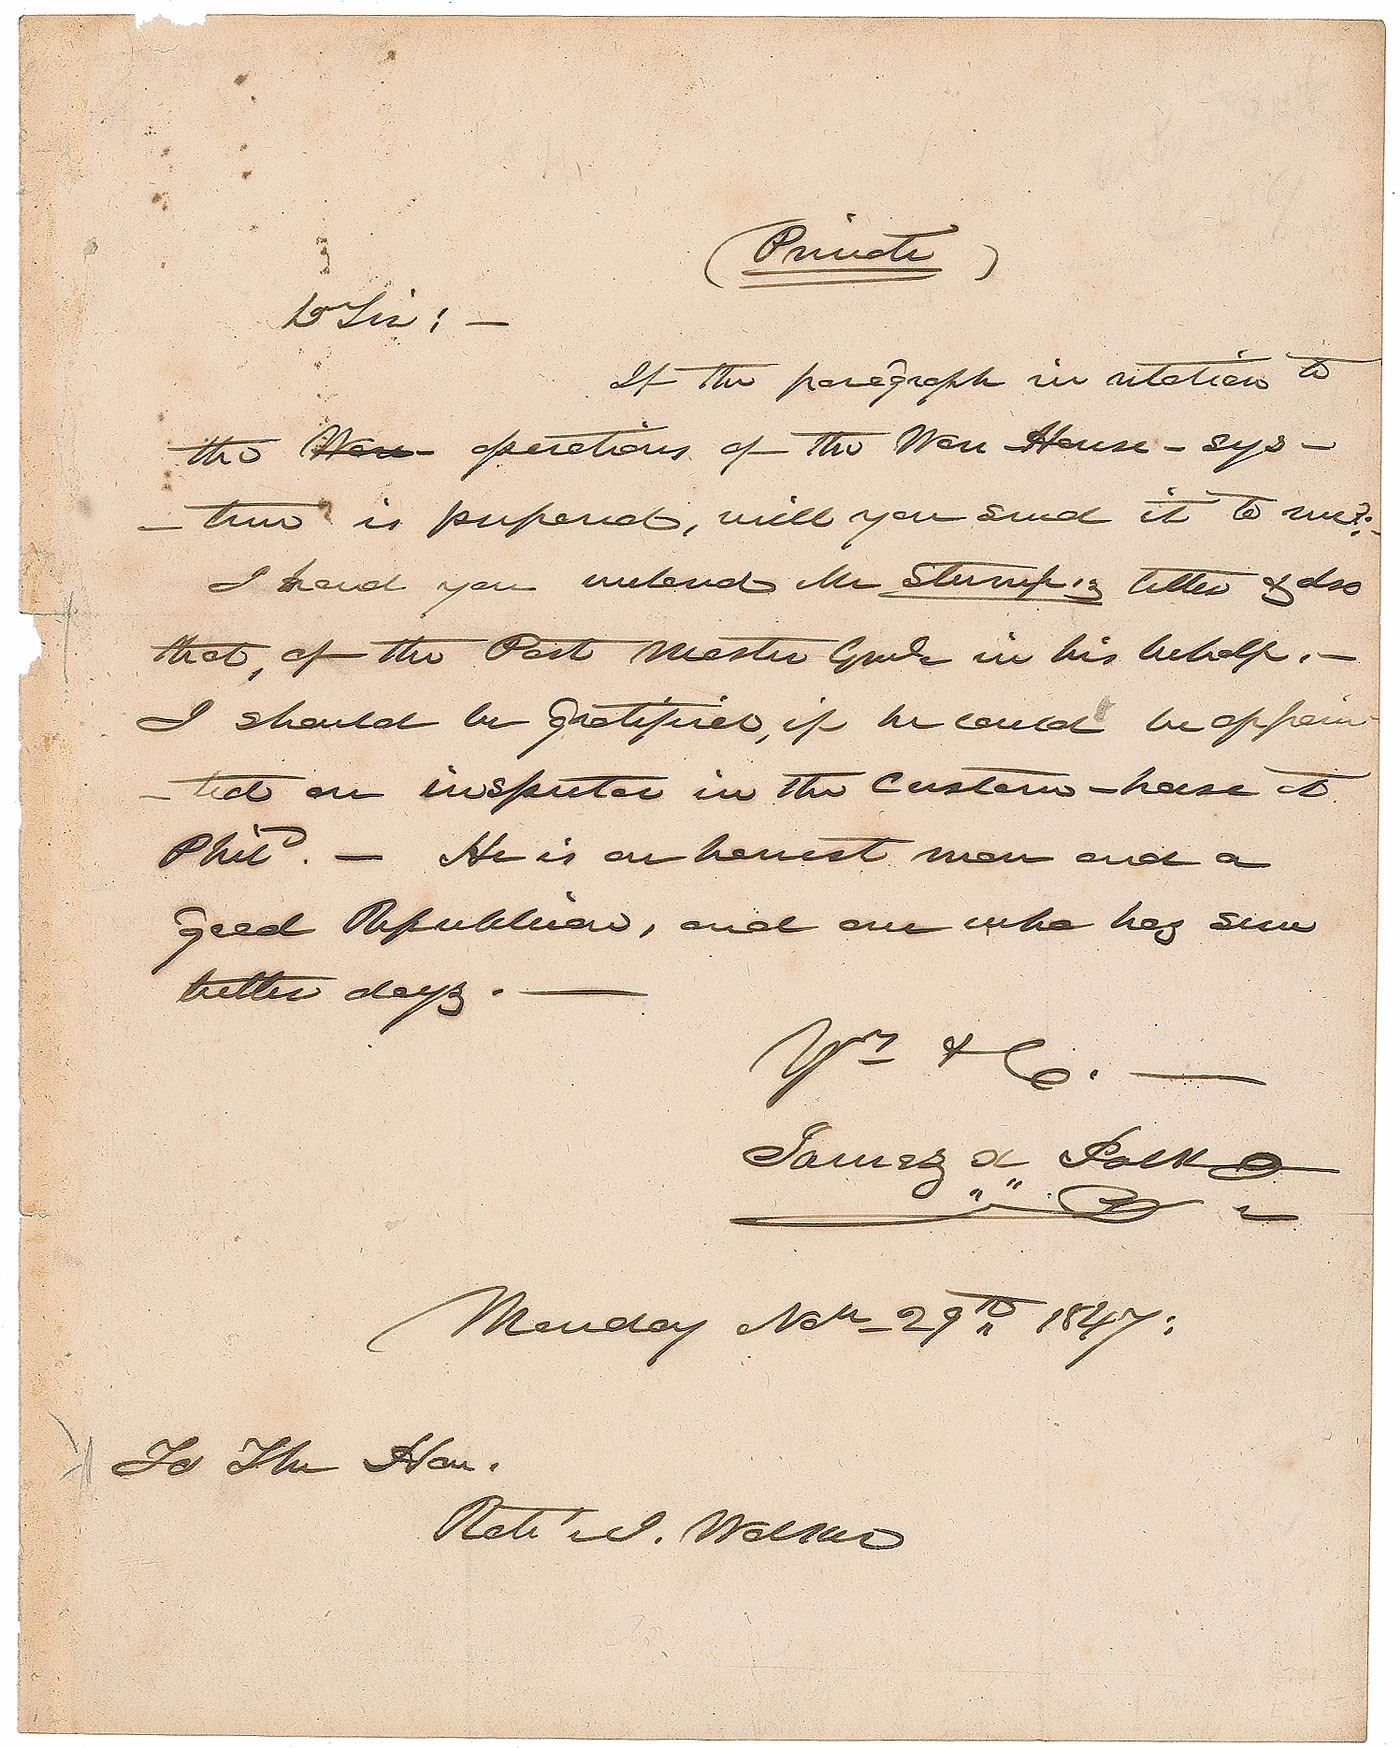 (Private)
Dr Sir: —
If the paragraph in relation to
the Ware- operations of the Ware House-sys-
-tem is prepared, will you send it to me?-
I hand you enclosed Mr Stump's letter & also
that, of the Post Master Genl in his behalf. —
I should be gratified, if he could be appoin-
-ted an inspector in the Custom-house at
Phila. — He is an honest man and a
good Republican, and one who has seen
better days. —
Yrs &C. —
James K Polk
Monday Novr 29th 1847:
To The Hon.
Robt J. Walker